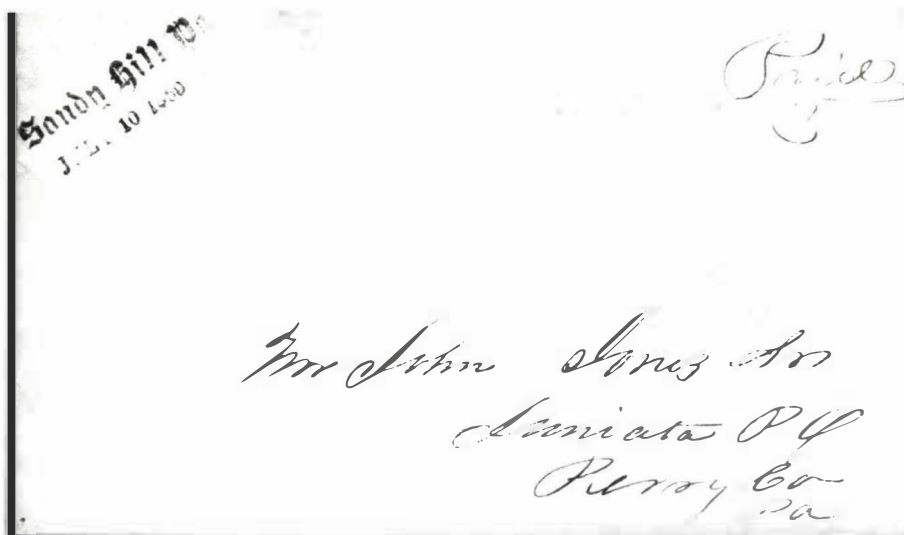 Sandy Hill Pa
JULY 10 1860
Paid
3
Mr John Jones Snr
Juniata P O
Perry Co
Pa